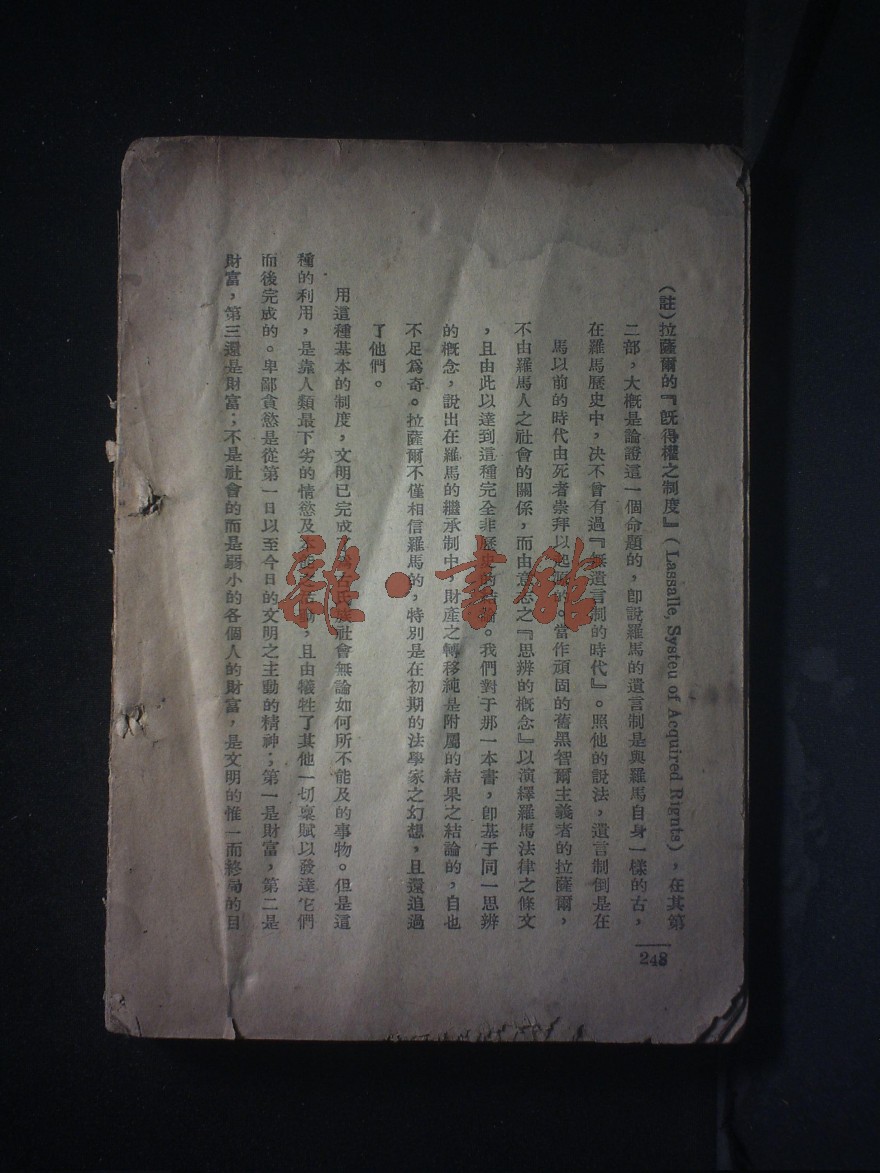 (註)拉薩爾的『既得權之制度』(Lassalle, Systeu of Acquired Rignts)，在其第
二部，大槪是論證這一個命題的，卽說羅馬的遺言制是與羅馬自身一樣的古，
在羅馬歷史中，決不曾有過『無遺言制的時代』。照他的說法，遺言制倒是在
馬以前的時代由死者崇拜以起源的。當作頑固的舊黑智爾主義者的拉薩爾，
不由羅馬人之社會的關係，而由意志之『思辨的槪念』以演繹羅馬法律之條文
，且由此以達到這種完全非歷史的結論。我們對于那一本書，卽基于同一思辨
的槪念，說出在羅馬的繼承制中，財產之轉移純是附屬的結果之結論的，自也
不足爲奇。拉薩爾不僅相信羅馬的，特別是在初期的法學家之幻想，且還追過
了他們。
用這種基本的制度，文明已完成古氏族社會無論如何所不能及的事物。但是這
種的利用，是靠人類最下劣的情慾及本，且由犧牲了其他一切稟賦以發達它們
而後完成的。卑鄙貪慾是從第一日以至今日的文明之主動的精神；第一是財富，第二是
財富，第三還是財富；不是社會的而是弱小的各個人的財富，是文明的惟一而終局的目
248
雜·書館